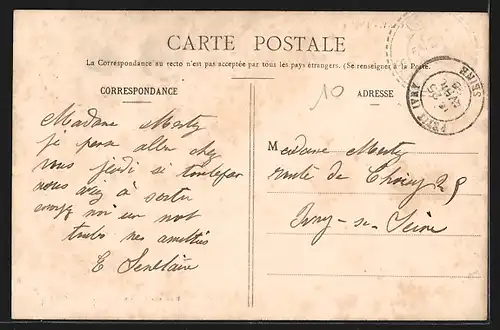 CARTE POSTALE
La Correspondance au recto n'est pas acceptée par tous les pays étrangers. (Se renseigner à la Poste.
CORRESPONDANCE
ADRESSE
10
PETIT IVRY
SEINE
Madame Merty
je pense aller chez
vous jeudi si toutefois
vous avez à sortir
envoyez moi un mot
mes amitiés
E
Madame Merty
route de Choisy 25
Ivry-s-Seine